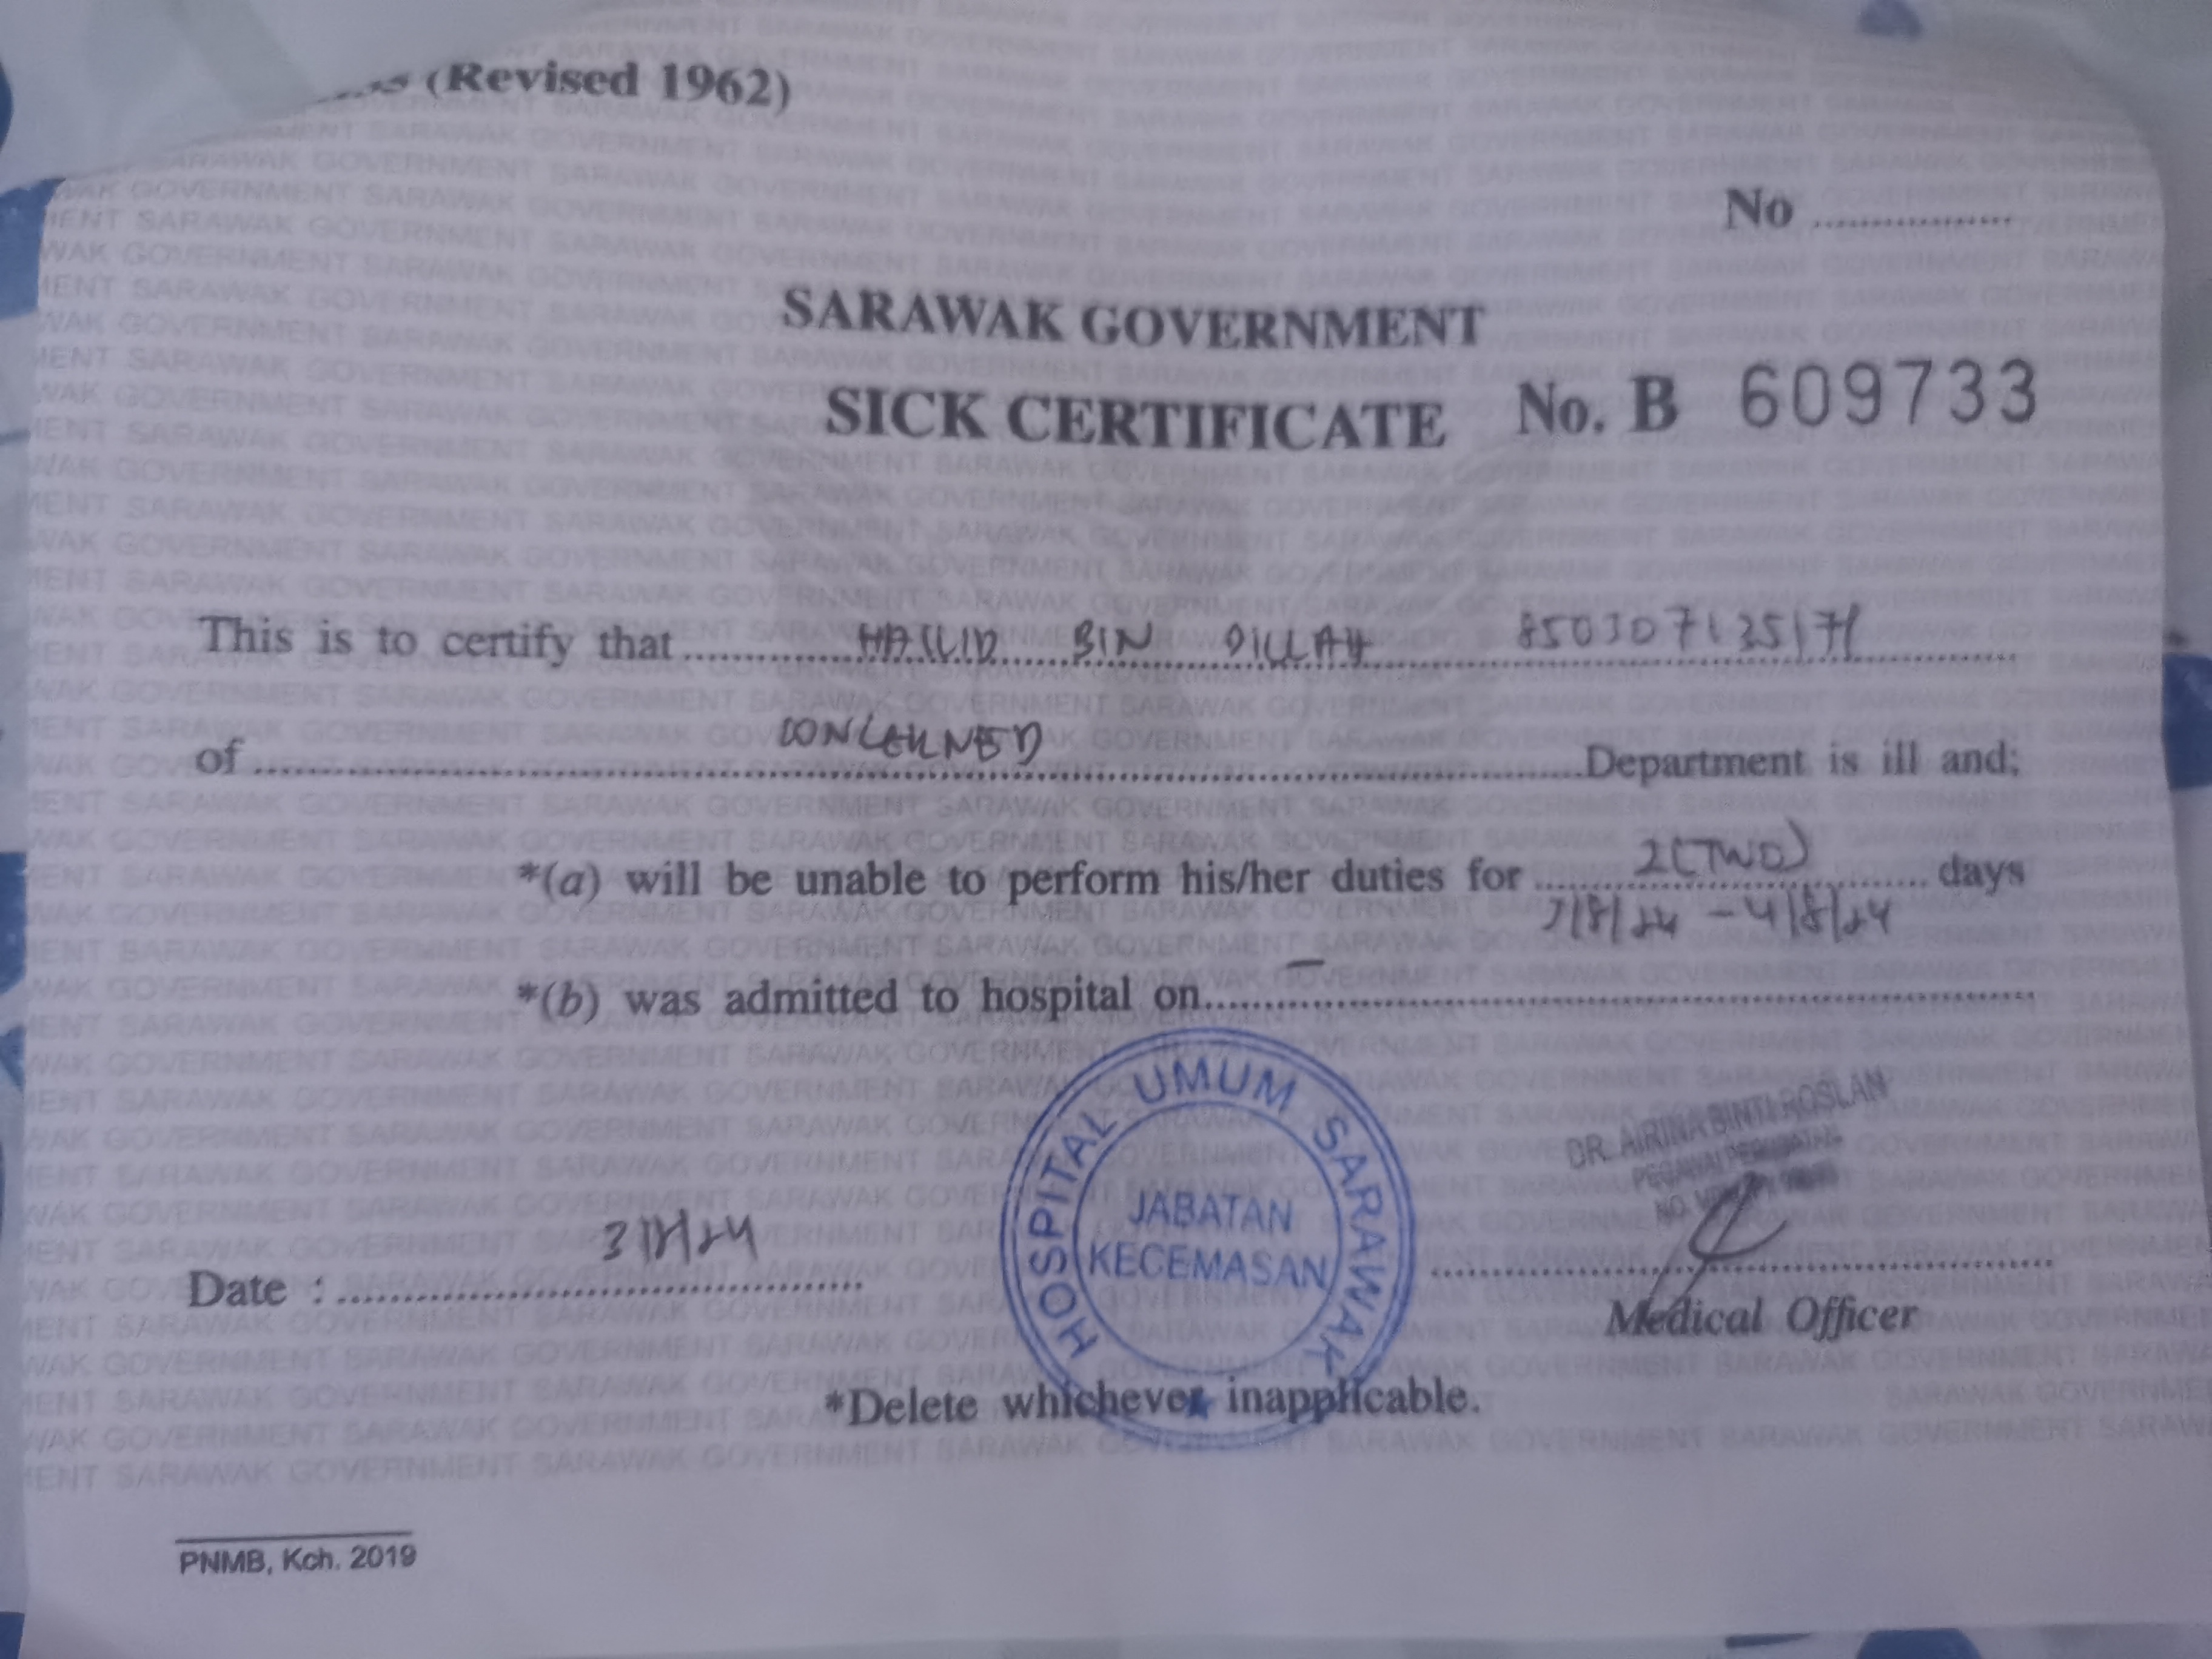 (Revised 1962)
No ..................
SARAWAK GOVERNMENT
SICK CERTIFICATE No. B 609733
This is to certify that BIN
of CONCERNED Department is ill and;
*(a) will be unable to perform his/her duties for 2 (TWO) days
3/8/24 - 4/8/24
*(b) was admitted to hospital on –
HOSPITAL UMUM SARAWAK
JABATAN
KECEMASAN
DR. AIRINA BINTI ROSLAN
PEGAWAI PERUBATAN
Date : 3/8/24
Medical Officer
*Delete whichever inapplicable.
PNMB, Kch. 2019